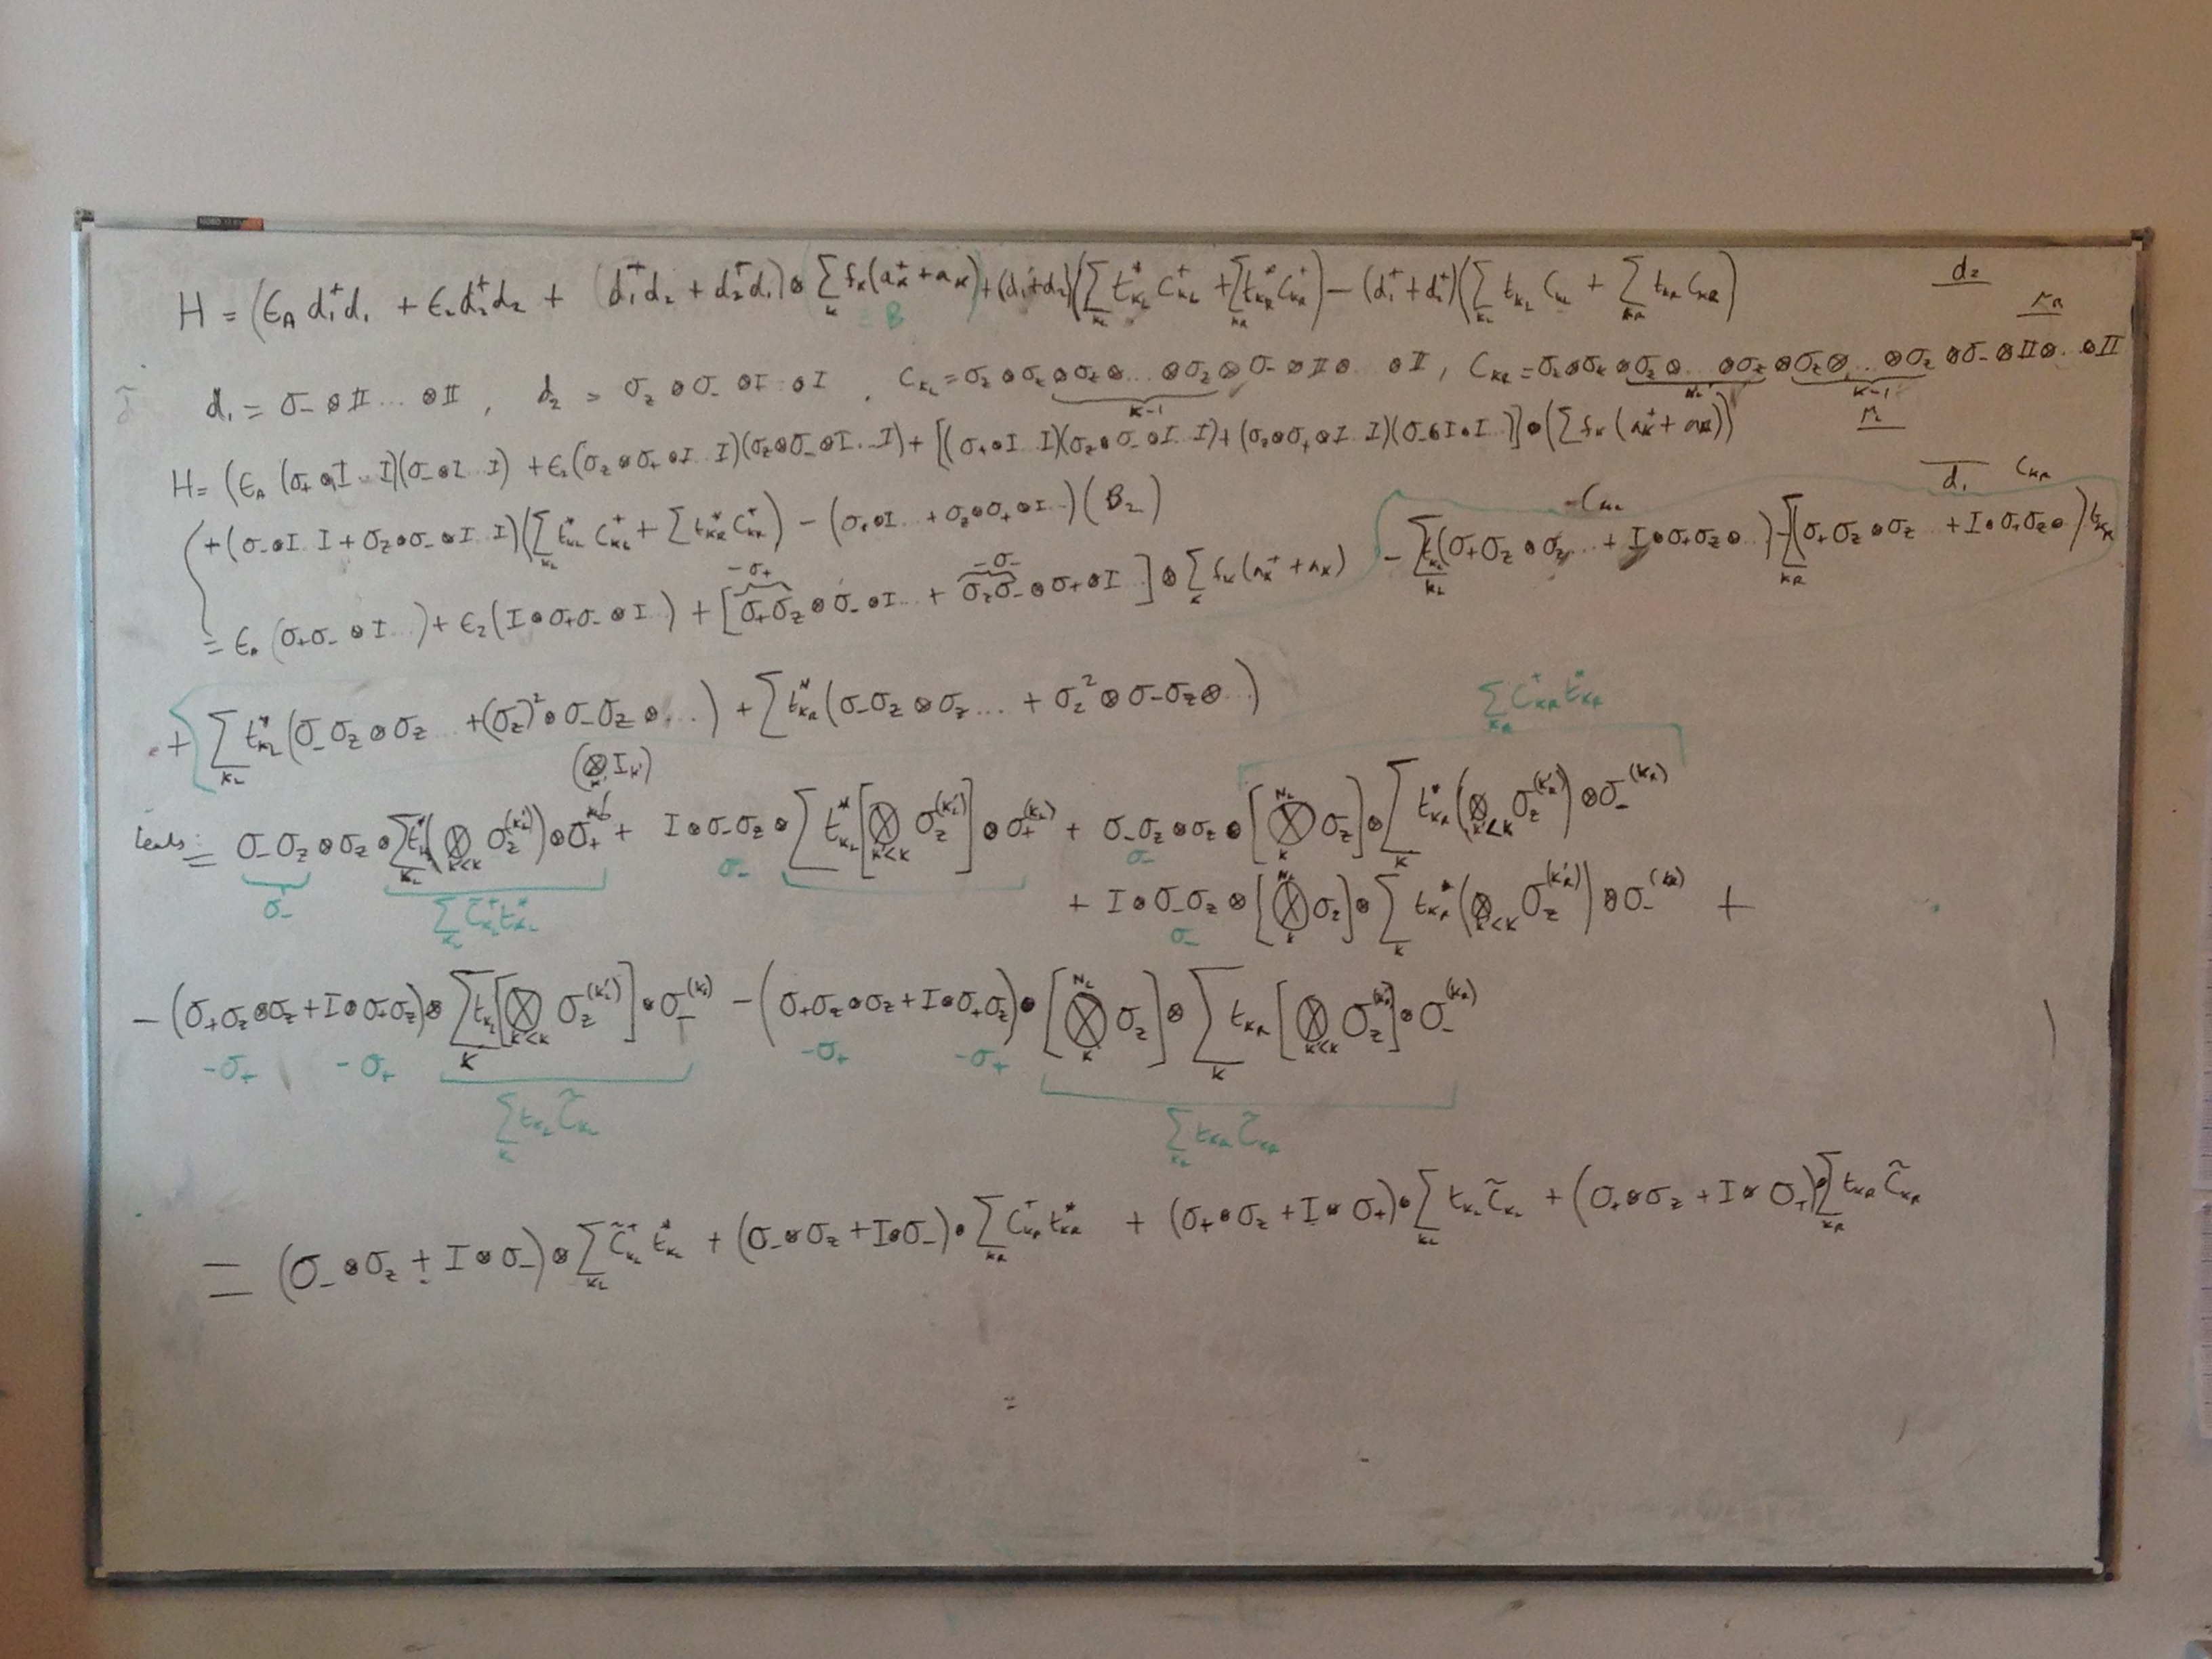 H = (ϵ_A d₁⁺d₁ + ϵ₂d₂⁺d₂ + (d₁⁺d₂ + d₂⁺d₁)⊗ ∑_k f_k(a_k⁺ + a_k) + (d₁+d₂)(∑_{k_L} t*_{k_L} C⁺_{k_L} + ∑_{k_R} t*_{k_R} C⁺_{k_R}) − (d₁⁺+d₂⁺)(∑_{k_L} t_{k_L} C_{k_L} + ∑_{k_R} t_{k_R} C_{k_R})
B
d₂
μ_R
d₁ = σ₋ ⊗ 𝕀 ... ⊗ 𝕀 , d₂ = σ_z ⊗ σ₋ ⊗ I .. ⊗ I , C_{k_L} = σ_z ⊗ σ_z ⊗ σ_z ⊗ ... ⊗ σ_z ⊗ σ₋ ⊗ 𝕀 ⊗ .. ⊗ 𝕀 , C_{k_R} = σ_z ⊗ σ_z ⊗ σ_z ⊗ ... ⊗ σ_z ⊗ σ_z ⊗ ... ⊗ σ_z ⊗ σ₋ ⊗ 𝕀 ⊗ .. ⊗ 𝕀
k-1 N_L k-1
μ_L
H = (ϵ_A (σ₊ ⊗ I .. I)(σ₋ ⊗ I .. I) + ϵ₂(σ_z ⊗ σ₊ ⊗ I .. I)(σ_z ⊗ σ₋ ⊗ I ... I) + [(σ₊ ⊗ I .. I)(σ_z ⊗ σ₋ ⊗ I .. I) + (σ_z ⊗ σ₊ ⊗ I .. I)(σ₋ ⊗ I ⊗ I ..)] ⊗ (∑ f_k (a_k⁺ + a_k))
d₁ C_{k_R}
+ (σ₋ ⊗ I .. I + σ_z ⊗ σ₋ ⊗ I .. I)(∑_{k_L} t*_{k_L} C⁺_{k_L} + ∑ t*_{k_R} C⁺_{k_R}) − (σ₊ ⊗ I ... + σ_z ⊗ σ₊ ⊗ I ...)(B₂)
−σ₊ −σ₋
= ϵ_A (σ₊σ₋ ⊗ I ...) + ϵ₂(I ⊗ σ₊σ₋ ⊗ I ..) + [σ₊σ_z ⊗ σ₋ ⊗ I ... + σ_zσ₋ ⊗ σ₊ ⊗ I ] ⊗ ∑_k f_k (a_k⁺ + a_k) − ∑_{k_L} t_{k_L}(σ₊σ_z ⊗ σ_z ... + I ⊗ σ₊σ_z ⊗ ...) − ∑_{k_R}(σ₊σ_z ⊗ σ_z ... + I ⊗ σ₊σ_z ⊗ ) t_{k_R}
+ ∑_{k_L} t*_{k_L}(σ₋σ_z ⊗ σ_z ... + (σ_z)² ⊗ σ₋σ_z ⊗ ...) + ∑ t*_{k_R}(σ₋σ_z ⊗ σ_z ... + σ_z² ⊗ σ₋σ_z ⊗ ...)
(⊗_{k'} I_{k'})
∑_{k_R} C⁺_{k_R} t*_{k_R}
leads: = σ₋σ_z ⊗ σ_z ⊗ ∑_{k_L} t*(⊗_{k'<k} σ_z^{(k'_L)}) ⊗ σ₊ + I ⊗ σ₋σ_z ⊗ ∑ t*_{k_L}[⊗_{k'<k} σ_z^{(k'_L)}] ⊗ σ₊^{(k_L)} + σ₋σ_z ⊗ σ_z ⊗ [⊗_k^{N_L} σ_z] ⊗ ∑_k t*_{k_R}(⊗_{k'<k} σ_z^{(k'_R)}) ⊗ σ₋^{(k_R)}
σ₋ ∑_{k_L} C̃⁺_{k_L} t*_{k_L} σ₋ σ₋
+ I ⊗ σ₋σ_z ⊗ [⊗_k^{N_L} σ_z] ⊗ ∑_k t*_{k_R}(⊗_{k'<k} σ_z^{(k'_R)}) ⊗ σ₋^{(k_R)} +
σ₋
− (σ₊σ_z ⊗ σ_z + I ⊗ σ₊σ_z) ⊗ ∑_k t_{k_L}[⊗_{k'<k} σ_z^{(k'_L)}] ⊗ σ₋^{(k_L)} − (σ₊σ_z ⊗ σ_z + I ⊗ σ₊σ_z) ⊗ [⊗_k^{N_L} σ_z] ⊗ ∑_k t_{k_R}[⊗_{k'<k} σ_z^{(k'_R)}] ⊗ σ₋^{(k_R)}
−σ₊ −σ₊ −σ₊ −σ₊
∑_k t_{k_L} C̃_{k_L} ∑_{k_R} t_{k_R} C̃_{k_R}
= (σ₋ ⊗ σ_z + I ⊗ σ₋) ⊗ ∑_{k_L} C̃⁺_{k_L} t*_{k_L} + (σ₋ ⊗ σ_z + I ⊗ σ₋) ⊗ ∑_{k_R} C̃⁺_{k_R} t*_{k_R} + (σ₊ ⊗ σ_z + I ⊗ σ₊) ⊗ ∑_{k_L} t_{k_L} C̃_{k_L} + (σ₊ ⊗ σ_z + I ⊗ σ₊) ⊗ ∑_{k_R} t_{k_R} C̃_{k_R}